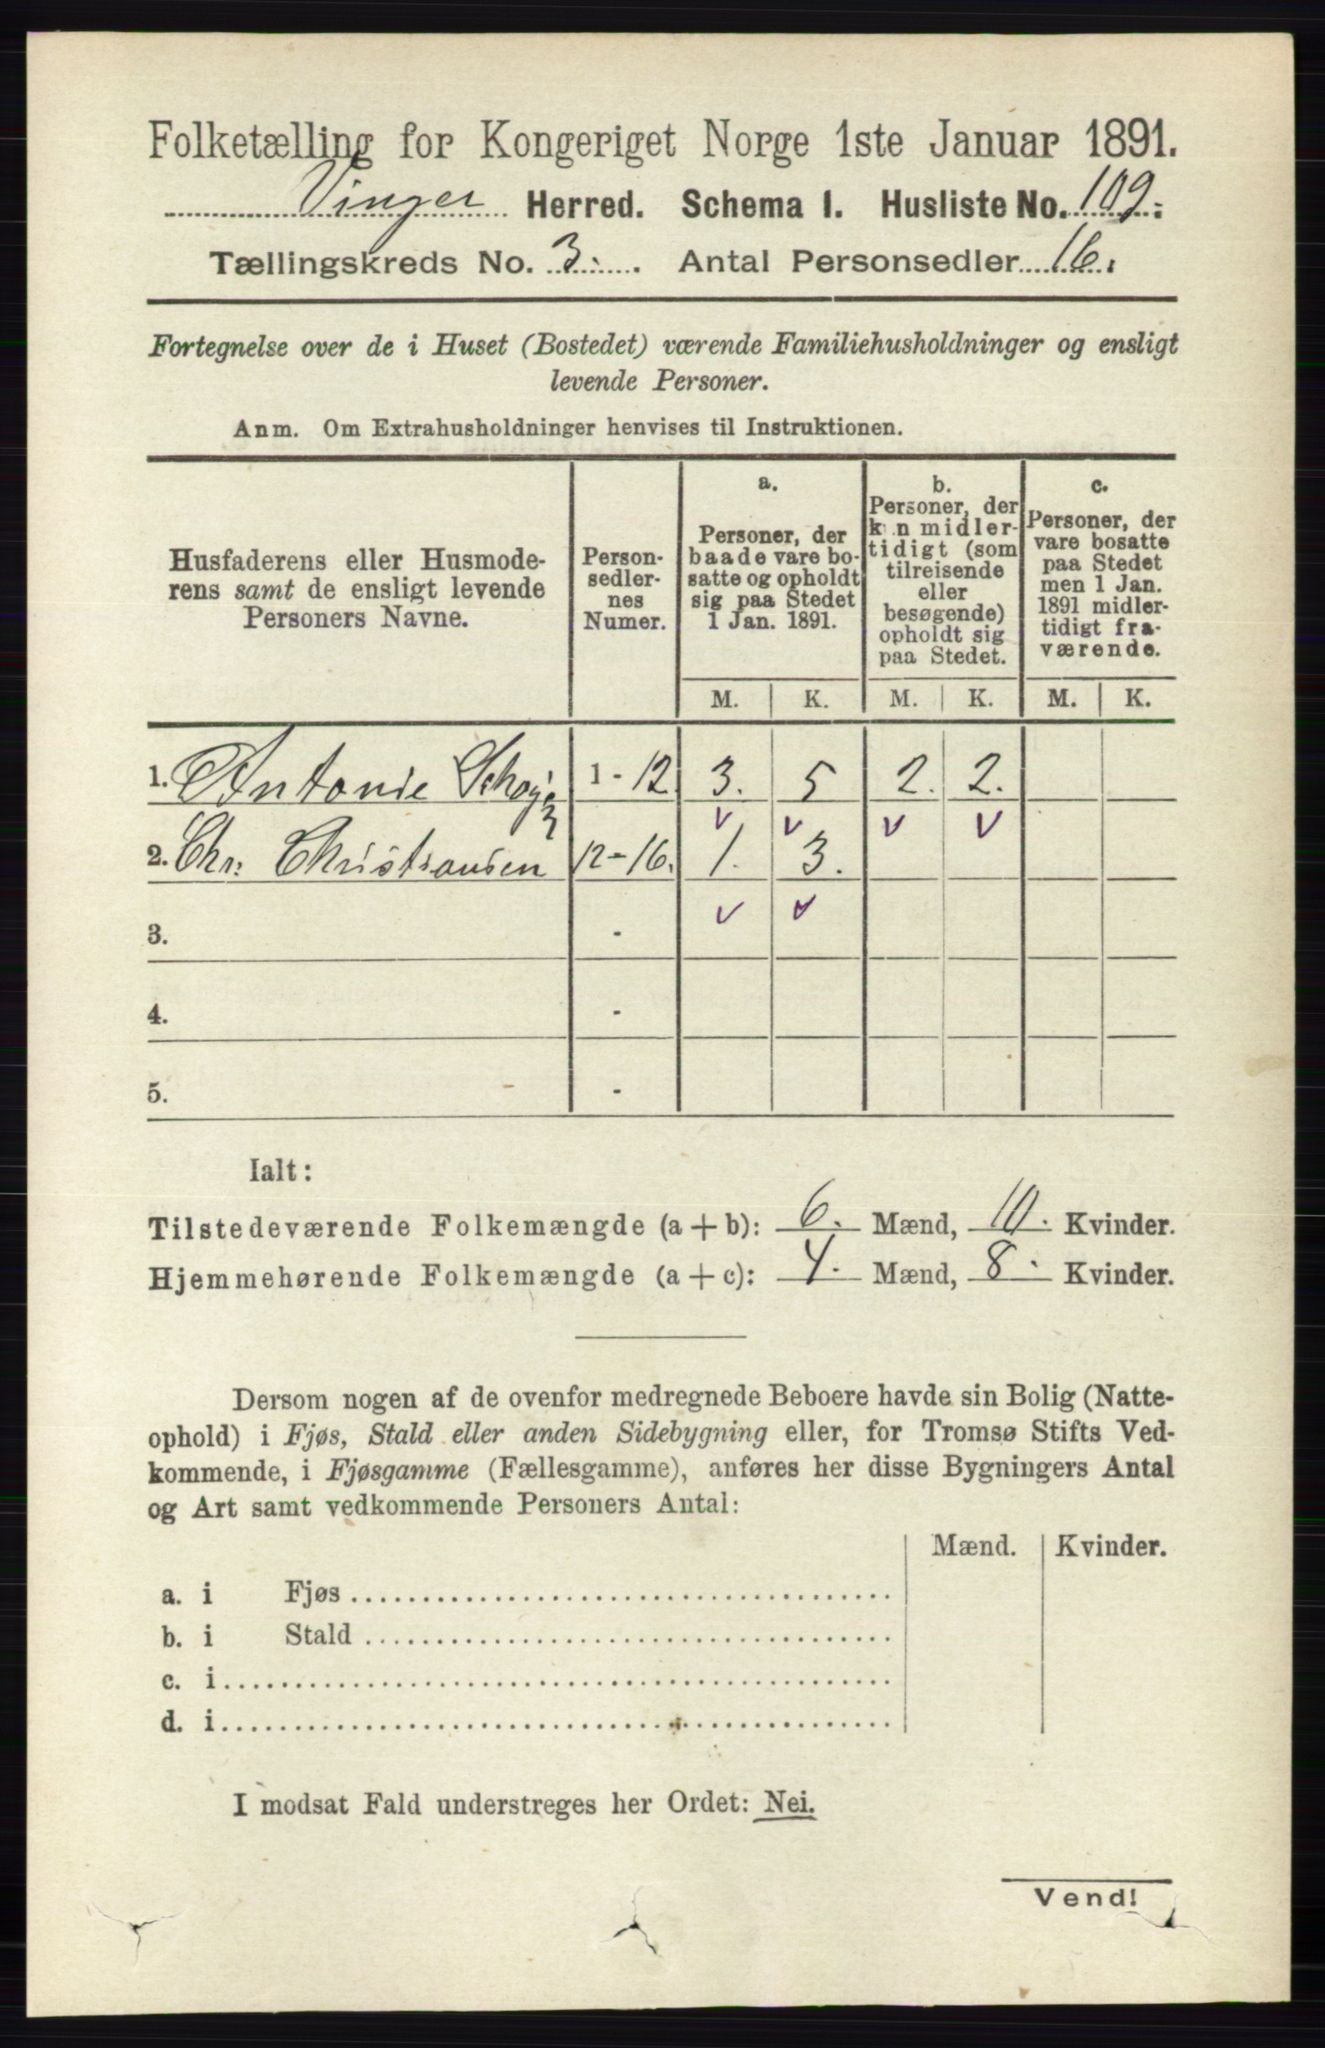 Folketælling for Kongeriget Norge 1ste Januar 1891.
Vinger Herred. Schema I. Husliste No. 109.
Tællingskreds No. 3. Antal Personsedler 16.
Fortegnelse over de i Huset (Bostedet) værende Familiehusholdninger og ensligt
levende Personer.
Anm. Om Extrahusholdninger henvises til Instruktionen.
Husfaderens eller Husmode-
rens samt de ensligt levende
Personers Navne.
Person-
sedler-
nes
Numer.
a.
Personer, der
baade vare bo-
satte og opholdt
sig paa Stedet
1 Jan. 1891.
b.
Personer, der
kun midler-
tidigt (som
tilreisende
eller
besøgende)
opholdt sig
paa Stedet.
c.
Personer, der
vare bosatte
paa Stedet
men 1 Jan.
1891 midler-
tidigt fra-
værende.
M. K. M. K. M. K.
1. Antonie 1 - 12 3. 5 2. 2.
2. Chr. Christiansen 12 - 16. 1. 3.
3. -
4. -
5. -
Ialt:
Tilstedeværende Folkemængde (a + b): 6. Mænd, 10. Kvinder.
Hjemmehørende Folkemængde (a + c): 4. Mænd, 8. Kvinder.
Dersom nogen af de ovenfor medregnede Beboere havde sin Bolig (Natte-
ophold) i Fjøs, Stald eller anden Sidebygning eller, for Tromsø Stifts Ved-
kommende, i Fjøsgamme (Fællesgamme), anføres her disse Bygningers Antal
og Art samt vedkommende Personers Antal:
Mænd. Kvinder.
a. i Fjøs
b. i Stald
c. i
d. i
I modsat Fald understreges her Ordet: Nei.
Vend!